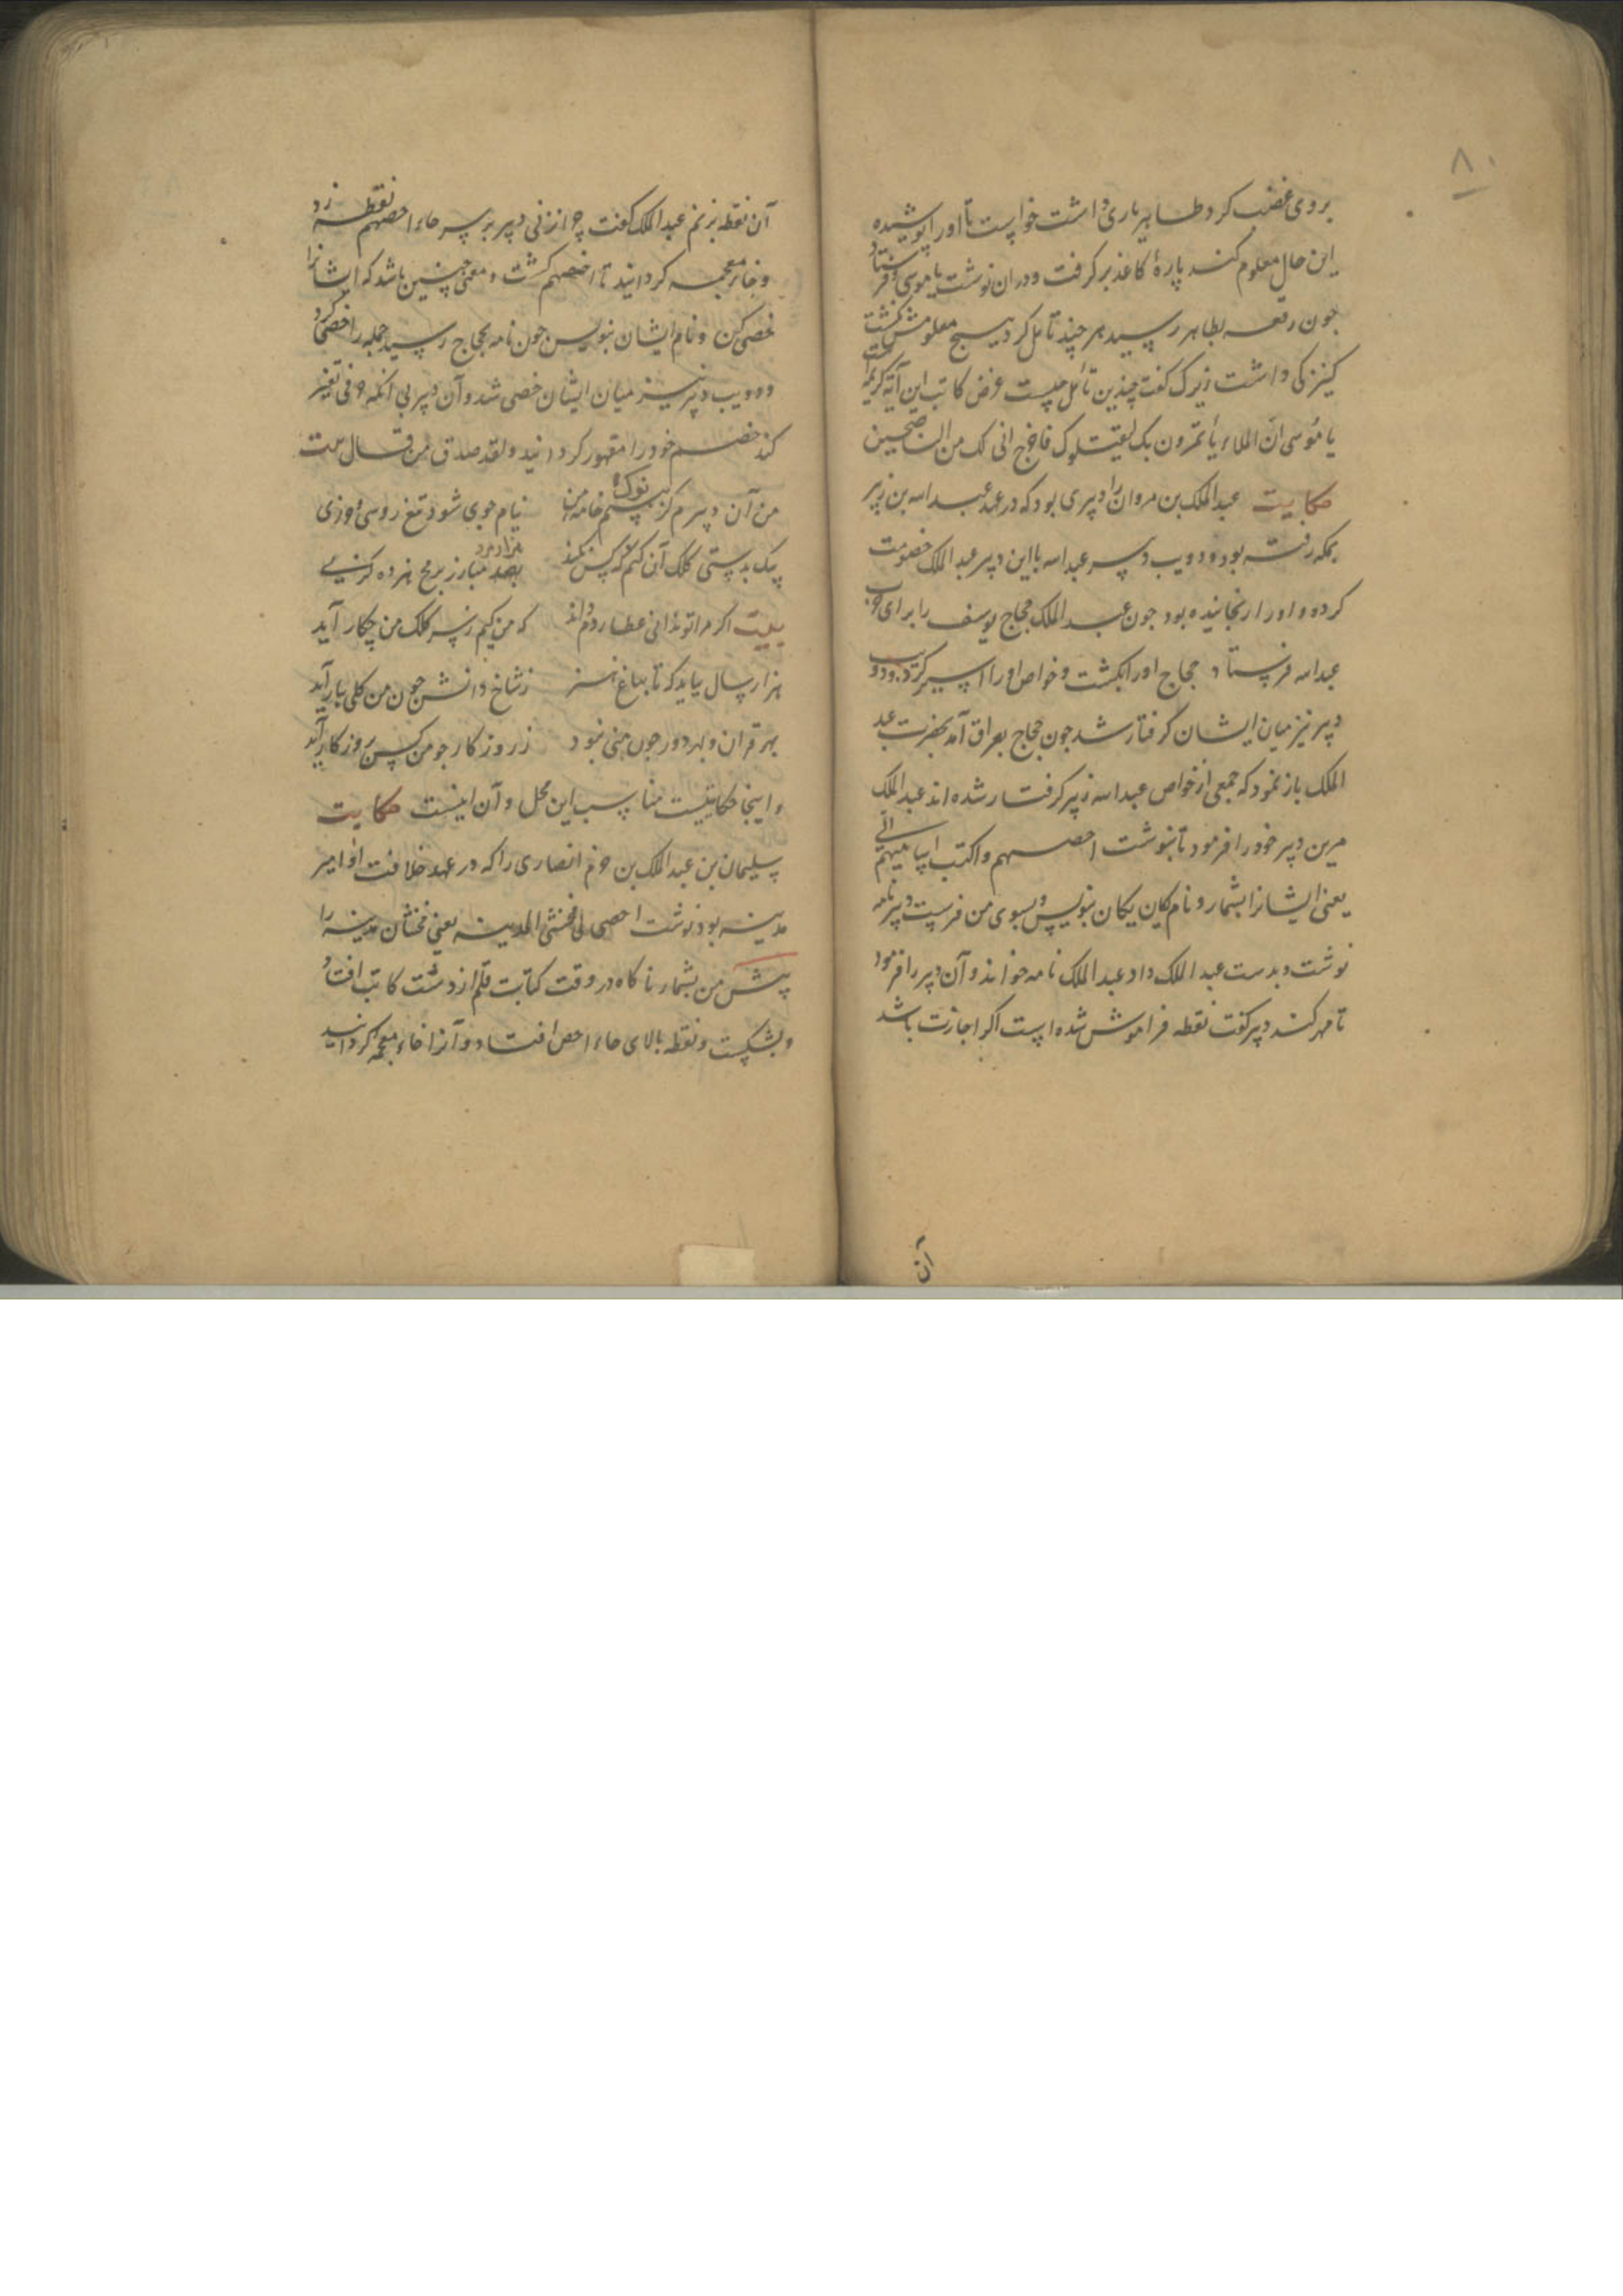 ۸۰
بروی غضب کرد طاهر یاری داشت خواست تا او را پوشیده
این حال معلوم کند پارهٔ کاغذ برگرفت و در ان نوشت یا موسی و فرستاد
جون رقعه بطاهر رسید هر چند تامل کرد هیچ معلومش نکشت
کنیزکی داشت زیرک کفت چندین تأمل چیست غرض کاتب این آیه کریمه است
یا مُوسی انّ الملاء یأتمرون بک لیقتلوک فاخرج انی لک من الناصحین
حکایت عبدالملک بن مروان را دبیری بود که در عهد عبدالله بن زبیر
بمکه رفته بود و دویب دبیر عبدالله با این دبیر عبدالملک خصومت
کرده و او را رنجانیده بود جون عبدالملک حجاج یوسف را برای حرب
عبدالله فرستاد حجاج او را بکشت و خواص او را اسیر کرد و دویب
دبیر نیز میان ایشان کرفتار شد جون حجاج بعراق آمد بحضرت عبد
الملک باز نمود که جمعی از خواص عبدالله زبیر کرفتار شده اند عبدالملک
مرین دبیر خود را فرمود تا بنوشت احصهم واکتب اسامیهم الی
یعنی ایشانرا بشمار و نام یکان یکان بنویس و بسوی من فرست دبیر نامه
نوشت و بدست عبدالملک داد عبدالملک نامه خواند و آن دبیر را فرمود
تا مهر کند دبیر کفت نقطه فراموش شده است اکر اجازت باشد
آن
آن نقطه بزنم عبدالملک کفت چرا نزنی دبیر بر سر حاء احصهم نقطه زد
و خاء معجمه کردانید تا اخصهم کشت و معنی چنین باشد که ایشانرا
خصی کن و نام ایشان بنویس جون نامه بحجاج رسید جمله را خصی کرد
و دویب دبیر نیز میان ایشان خصی شد و آن دبیر بی آنکه حرفی تغییر
کند خصم خود را مقهور کردانید ولقد صدق من قال بیت
من آن دبیرم کز بیم نوک خامه من نیام جوی شود تیغ روسی و وزی
بیک بدستی کلک آن کنم که کس نکند بصد هزار مرد مبارز برمح هژده کزی
بیت اکر مرا تو ندانی عطارد م داند که من کیم ز سر کلک من چکار آید
هزار سال بباید که تا بباغ هنر ز شاخ دانش جون من کلی ببار آید
بهر قران و بهر دور جون منی نبود ز روزکار جو من کس بروزکار آید
و اینجا حکایتیست مناسب این محل و آن اینست حکایت
سلیمان بن عبدالملک بن حزم انصاری را که در عهد خلافت او امیر
مدینه بود نوشت احصی لی مخنثی المدینه یعنی مخنثان مدینه را
پیش من بشمار ناکاه در وقت کتابت قلم از دست کاتب افتاد
و بشکست و نقطه بالای حاء احص افتاد و آنرا خاء معجمه کردانید